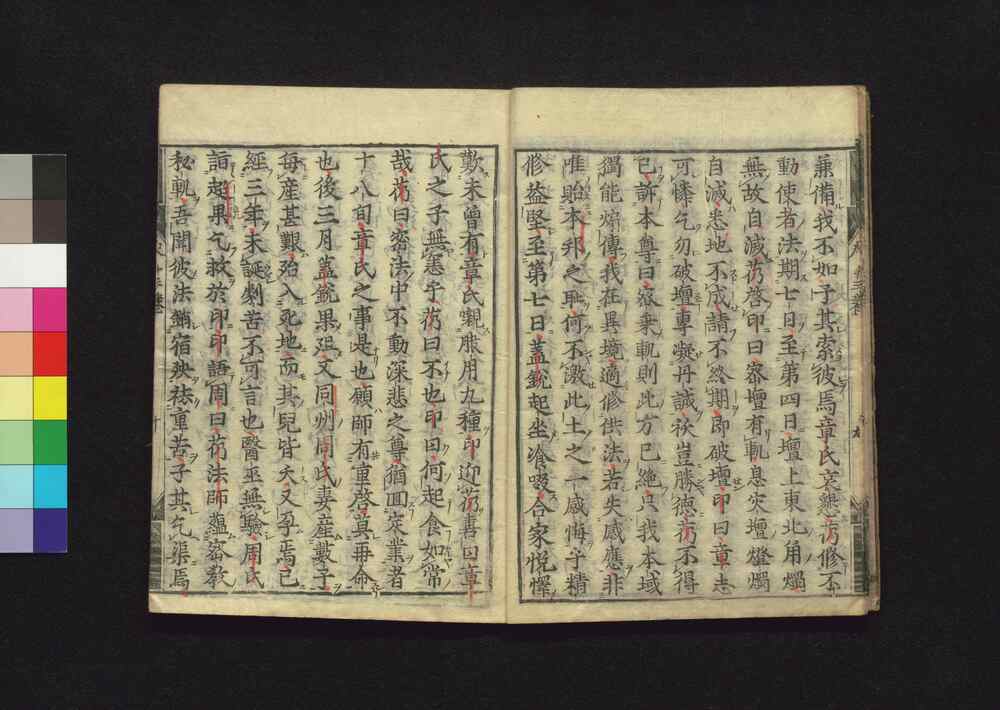 兼備我不如子其索彼焉章氏哀懇芿修不
動使者法期七日至第四日壇上東北角燭
無故自滅芿啓印曰密壇有軌息灾壇燈燭
自滅悉地不成請不終期即破壇印曰章志
可憐乞勿破壇專凝丹誠祅豈勝德芿不得
已訴本尊曰裱乗軌則此方已絶只我本域
獨能煽傳我在異境適修供法若失感應非
唯貽本邦之耻何不激此土之一感悔予精
修益堅至第七日蓋銃起坐飡啜合家悦懌
歎未曾有章氏䞋服用九種印迎芿喜曰章
氏之子無恙乎芿曰不也印曰何起食如常
哉芿曰密法中不動深悲之尊猶回定業者
十八旬章氏之事是也願師有重啓眞再命
也後三月蓋銃果殂又同州周氏妻産數子
每産甚艱殆入死地而其兒皆夭又孕焉已
經三年未誕剌苦不可言也醫巫無驗周氏
詣起果乞救於印印語周曰芿法師蘊密教
秘軌吾聞彼法銷宿殃祛重苦子其乞渠焉